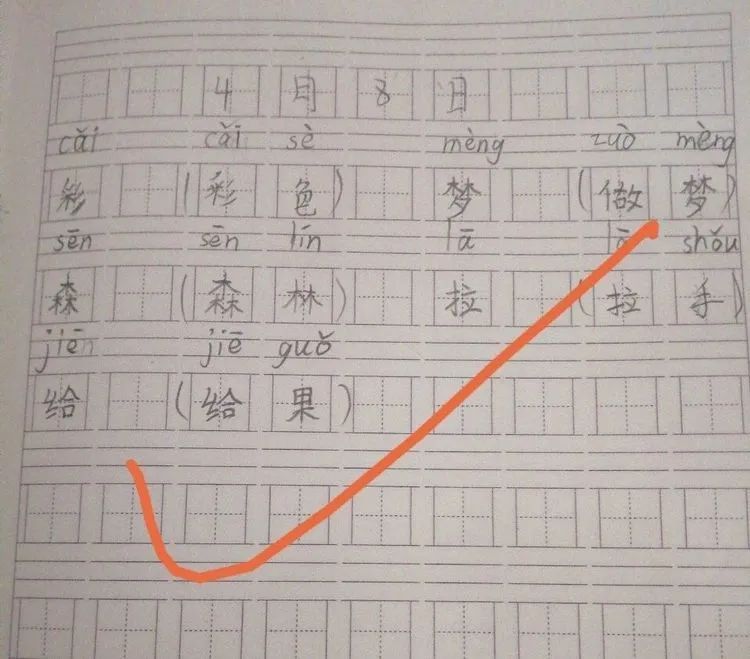 4 目 8 日
cǎi cǎi sè mèng zuò mèng
彩 (彩 色) 梦 (做 梦)
sēn sēn lín lā lā shǒu
森 (森 林) 拉 (拉 手)
jiē jiē guǒ
给 (给 果)